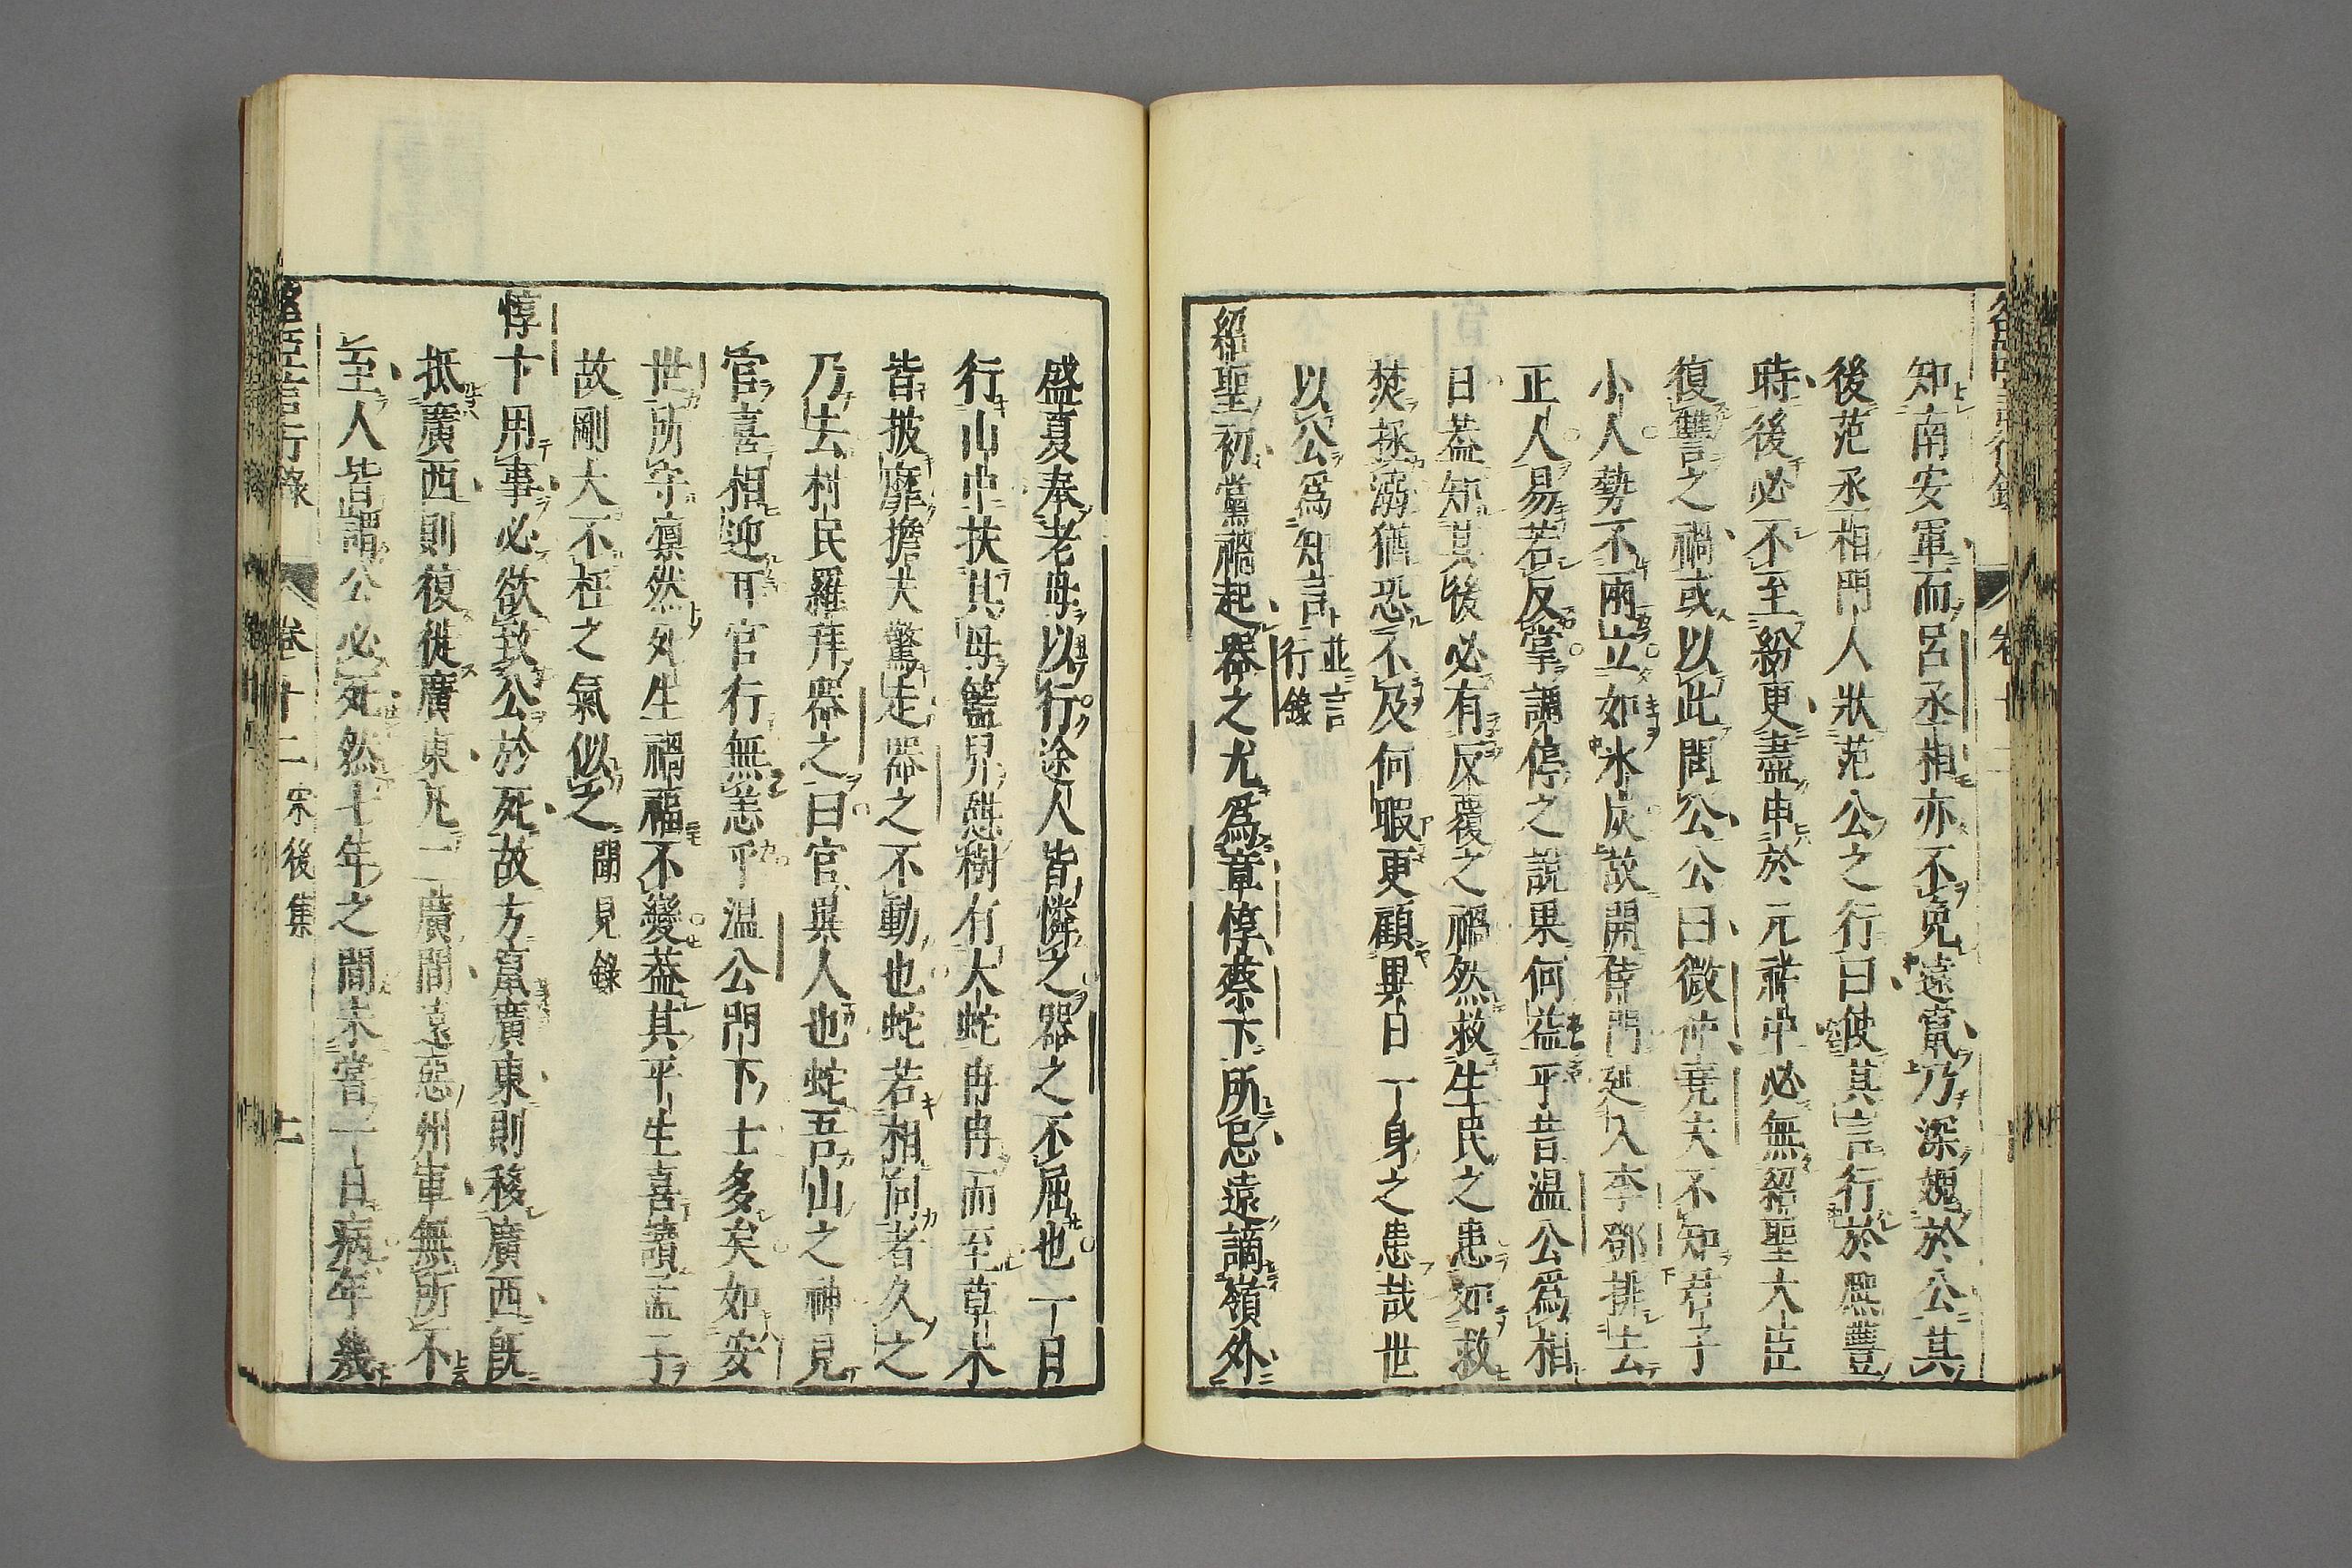 知南安軍而呂丞相亦不免遠竄乃深媿於公其
後范丞相門人狀范公之行曰使其言行於熈豐
時後必不至紛更盡申於元祐中必無紹聖大臣
復讐之禍或以此問公公曰微仲堯夫不知君子
小人勢不兩立如氷炭故開倖門延入李鄧排去
正人易若反掌調停之說果何益乎昔温公爲相
日葢知其後必有反覆之禍然救生民之患如救
焚拯溺猶恐不及何暇更顧異日一身之患哉世
以公爲知言並言行錄
紹聖初黨禍起器之尤爲章惇蔡卞所忌遠謫嶺外
盛夏奉老母以行途人皆憐之器之不屈也一日
行山中扶其母籃舁憇樹有大蛇冉冉而至草木
皆披靡擔夫驚走器之不動也蛇若相向者久之
乃去村民羅拜器之曰官異人也蛇吾山之神見
官喜相迎耳官行無恙乎温公門下士多矣如安
世所守凛然死生禍福不變葢其平生喜讀孟子
故剛大不枉之氣似之聞見錄
惇卞用事必欲致公於死故方竄廣東則移廣西旣
抵廣西則復徙廣東凡二廣間遠惡州軍無所不
至人皆謂公必死然七年之間未嘗一日病年幾
卷十二 宋後集